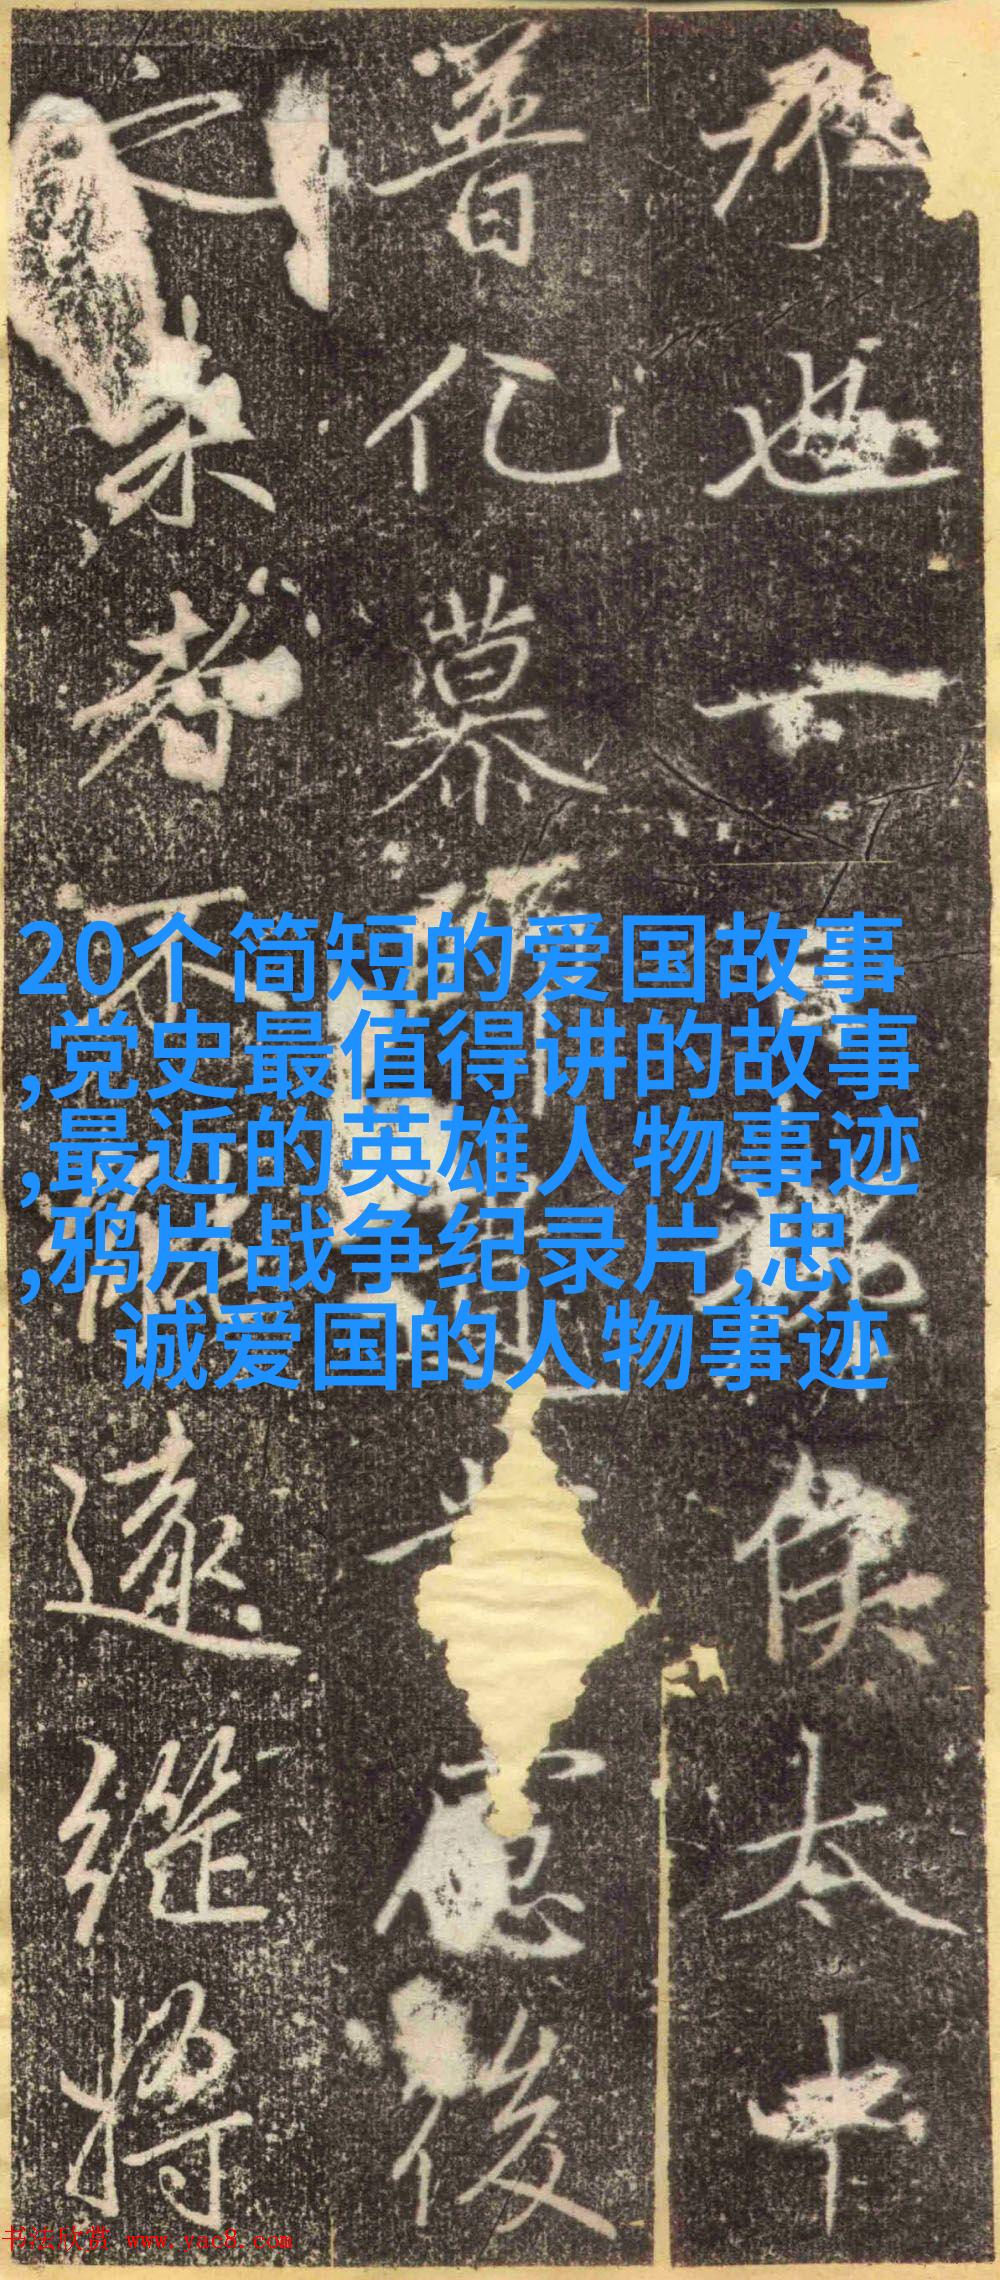 也一侯太中
普化慕後
者不遠継将
20个简短的爱国故事
,党史最值得讲的故事
,最近的英雄人物事迹
,鸦片战争纪录片,忠
诚爱国的人物事迹
书法欣赏 www.yac8.com